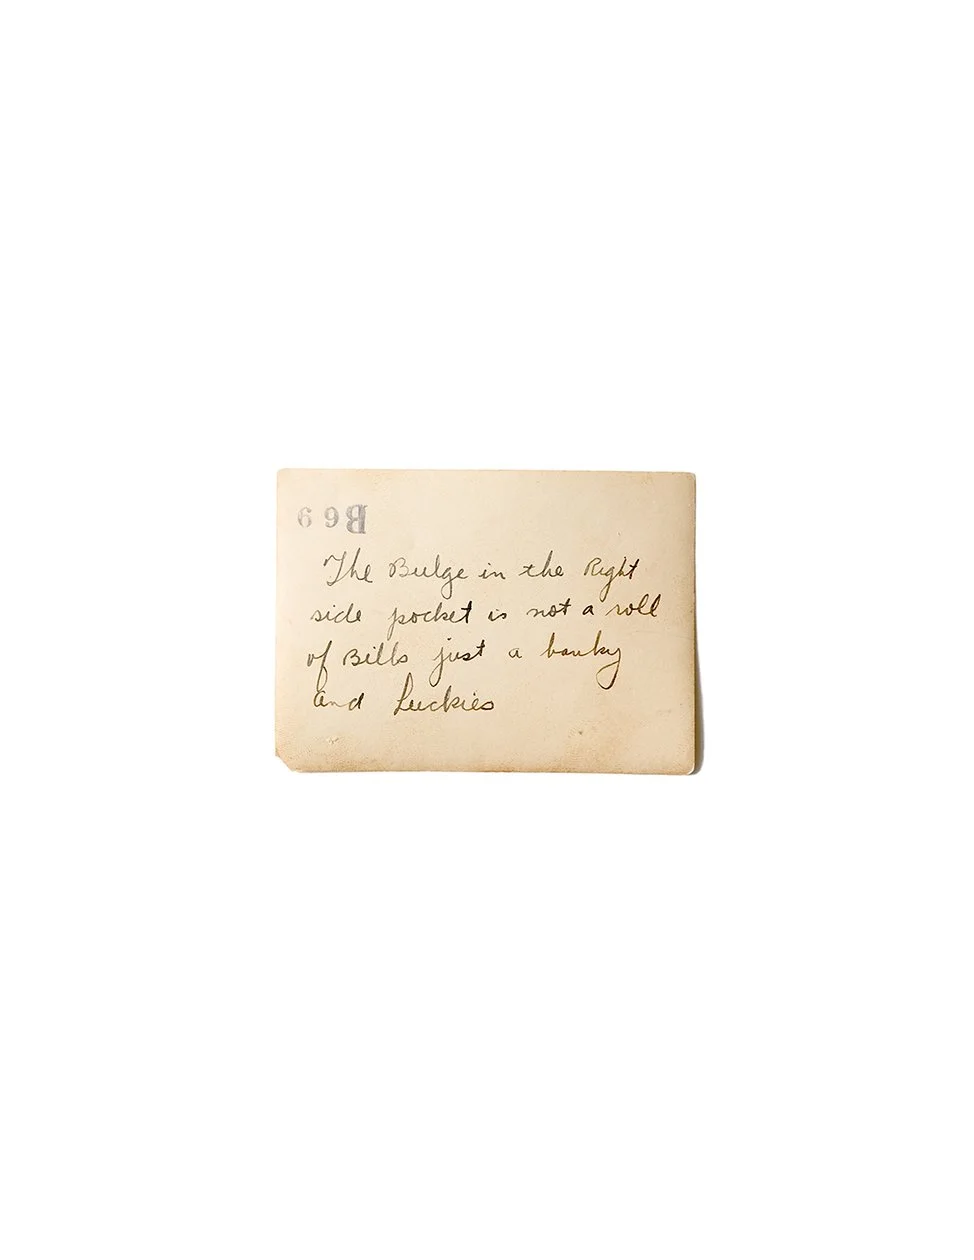 B69
The Bulge in the Right
side pocket is not a roll
of Bills just a hanky
and Luckies